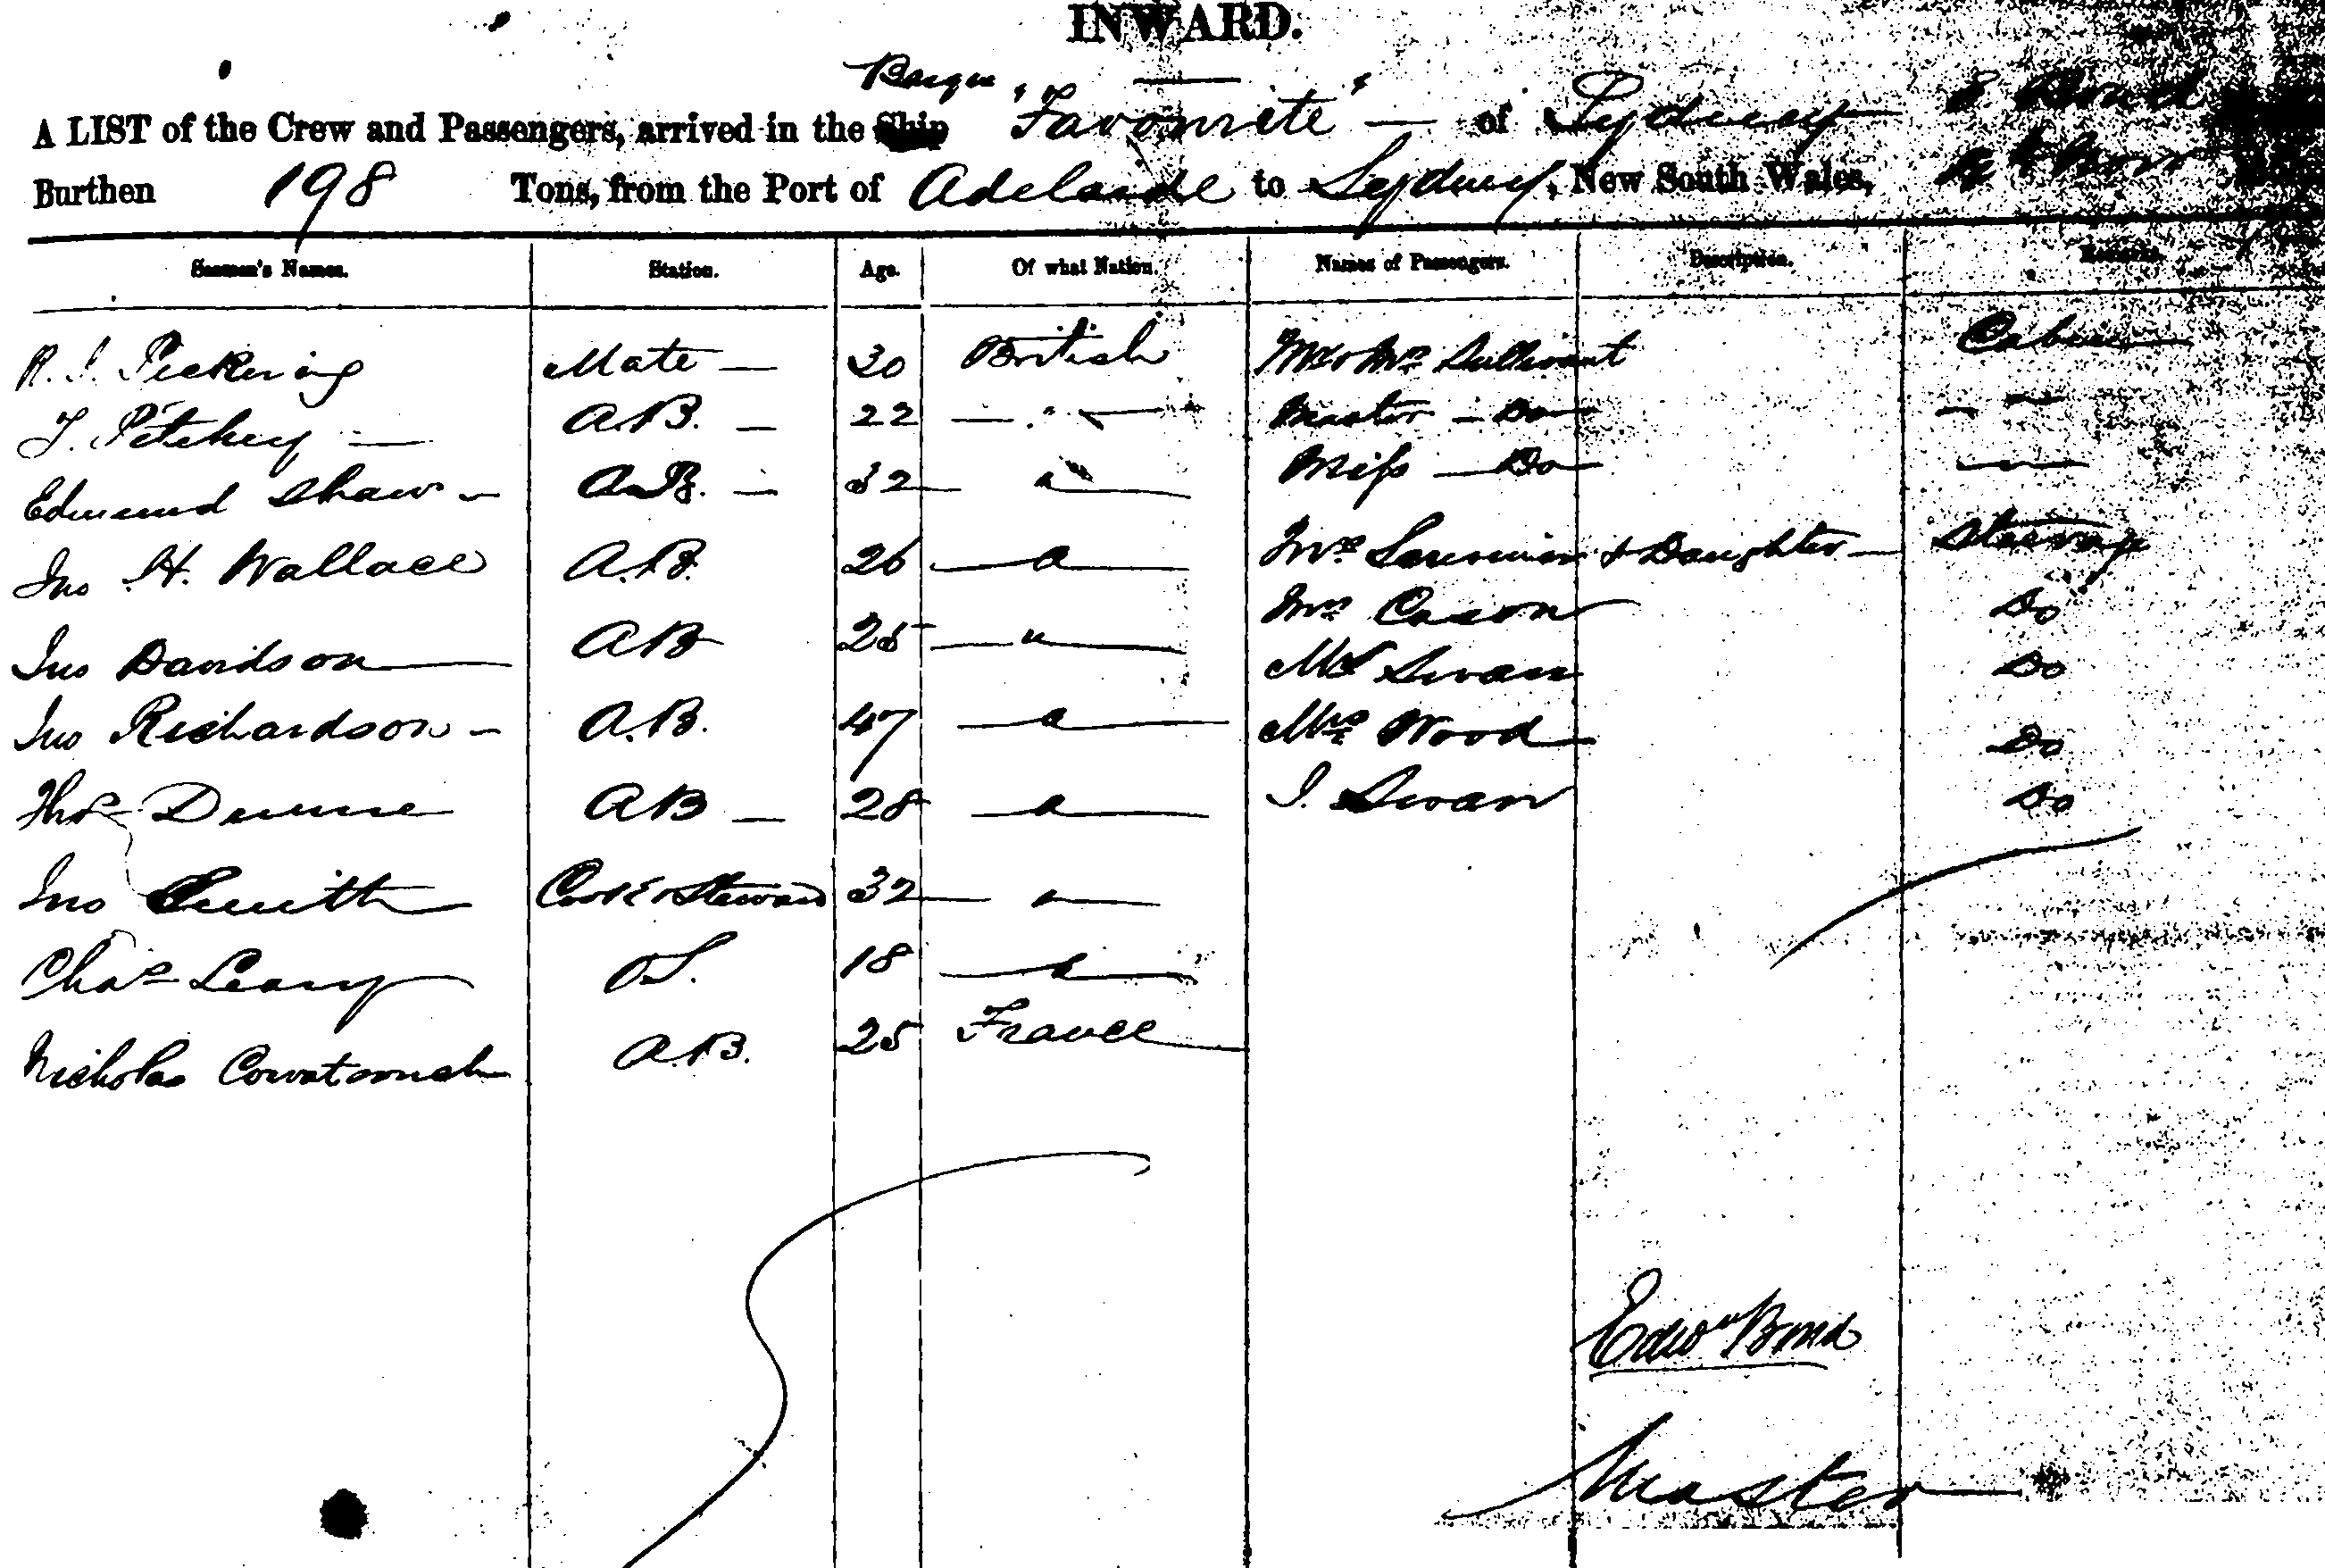 INWARD.
Barque
A LIST of the Crew and Passengers, arrived in the Ship "Favourite" — of Sydney E Bond
Burthen 198 Tons, from the Port of Adelaide to Sydney, New South Wales,
Seamen's Names. Station. Age. Of what Nation. Names of Passengers. Description. Remarks.
R. J. Pickering Mate — 30 British Mr & Mrs Sullivant Cabin
T. Pitchey — A.B. — 22 — " — Master — Do — "
Edmund Shaw — A.B. — 32 — " — Miss — Do — " —
Jno H. Wallace A.B. 26 — " — Mrs & Daughter — Steerage
Jno Davidson — AB 25 — " — Mrs Cason Do
Jno Richardson — A.B. 47 — " — Mr Swan Do
Thos Dunne AB — 28 — " — Mrs Wood Do
Jno Smith Cook & Steward 32 — " — J. Swan Do
Chas Leary O.S. 18 — " —
Nicholas A.B. 25 France
Edwd Bond
Master